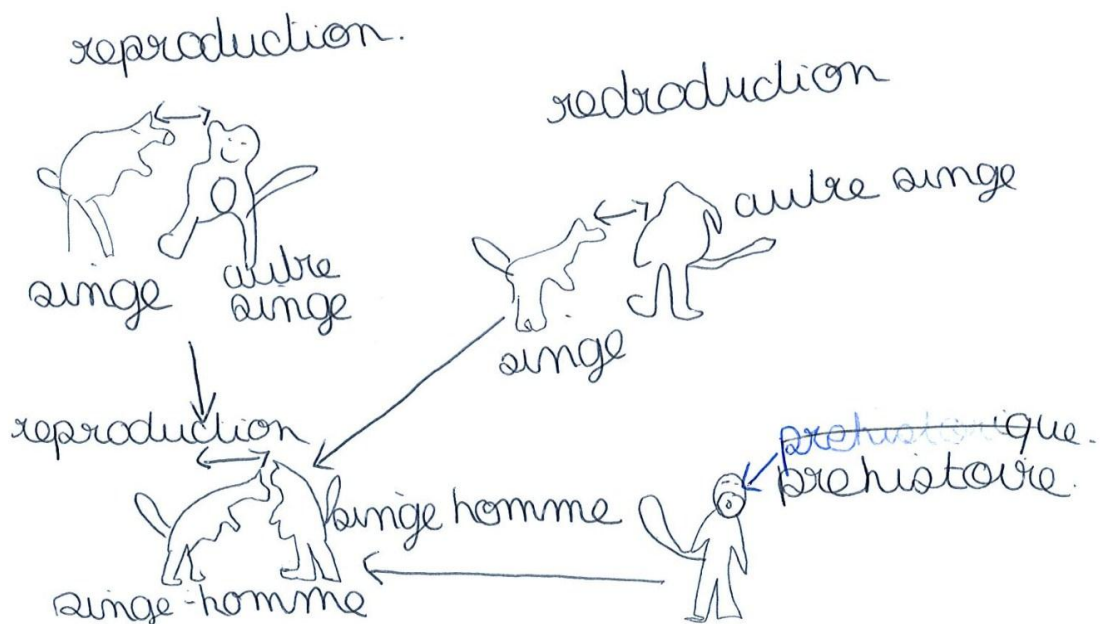 reproduction.
redroduction
singe
autre
singe
autre singe
singe
reproduction
prehistorique.
prehistoire.
singe homme
singe-homme